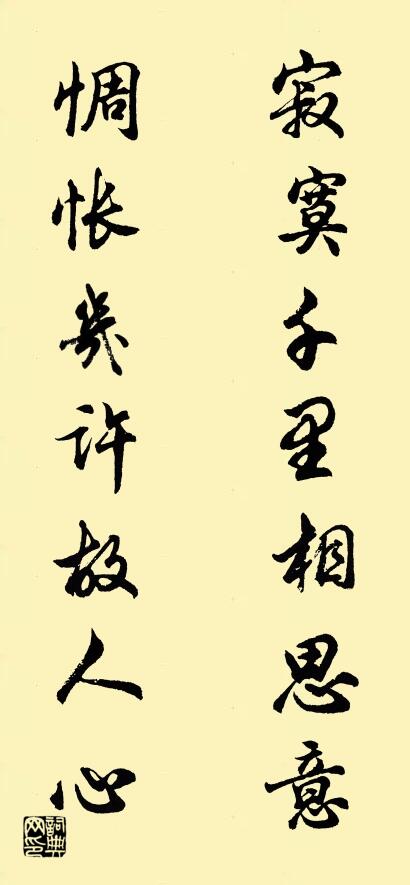 寂寞千里相思意
惆怅幾许故人心
詞典网印